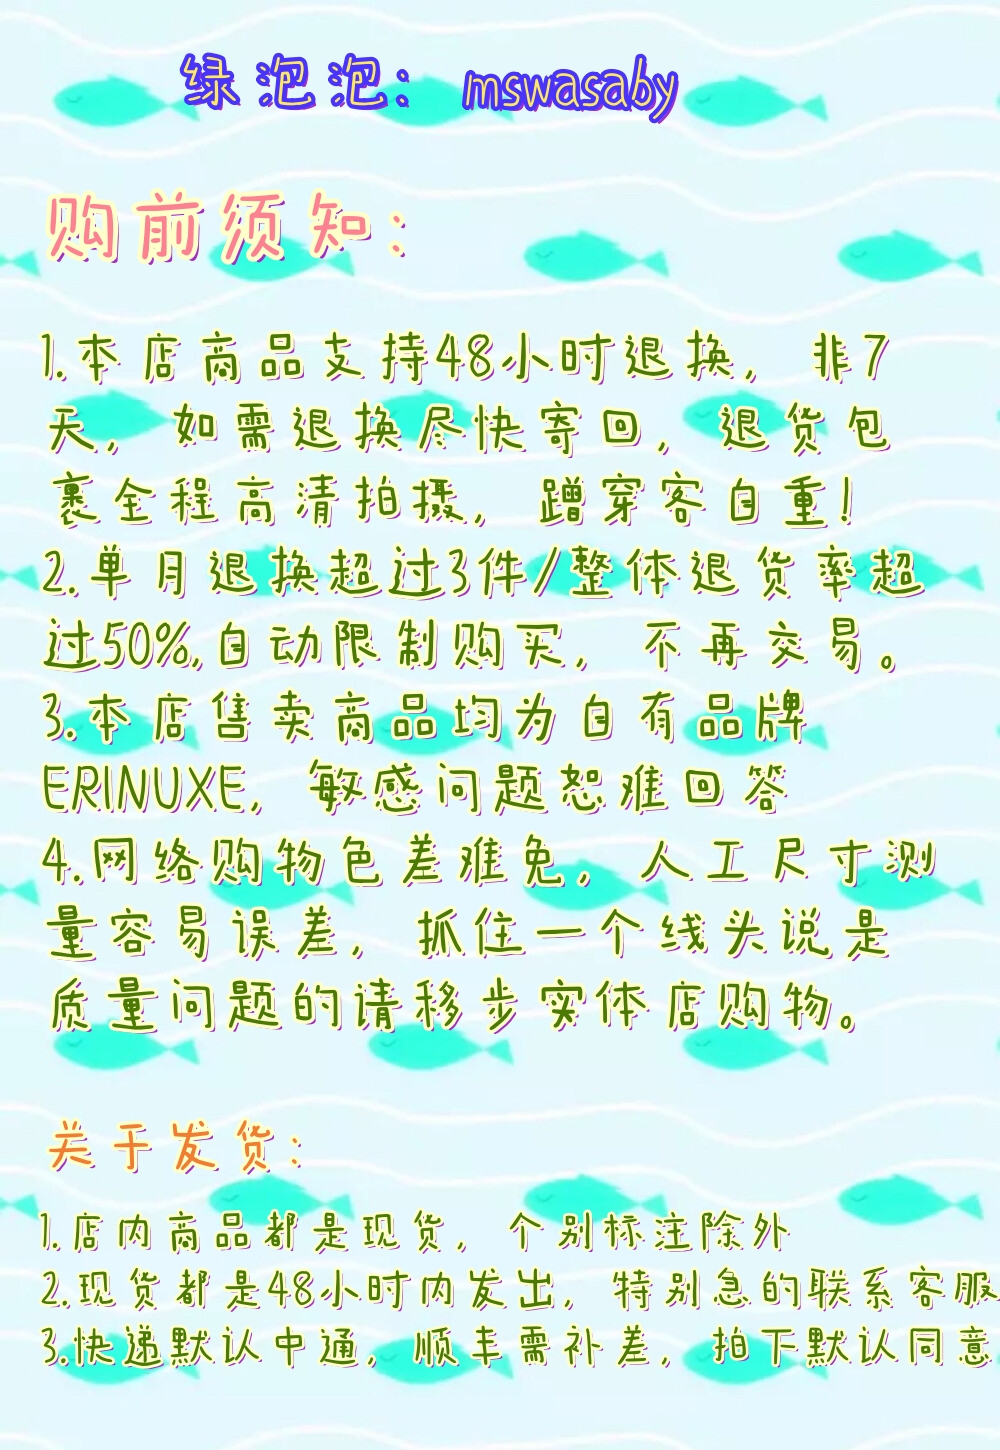 绿泡泡：mswasaby
购前须知：
1.本店商品支持48小时退换，非7
天，如需退换尽快寄回，退货包
裹全程高清拍摄，蹭穿客自重！
2.单月退换超过3件/整体退货率超
过50%,自动限制购买，不再交易。
3.本店售卖商品均为自有品牌
ERINUXE，敏感问题恕难回答
4.网络购物色差难免，人工尺寸测
量容易误差，抓住一个线头说是
质量问题的请移步实体店购物。
关于发货：
1.店内商品都是现货，个别标注除外
2.现货都是48小时内发出，特别急的联系客服
3.快递默认中通，顺丰需补差，拍下默认同意